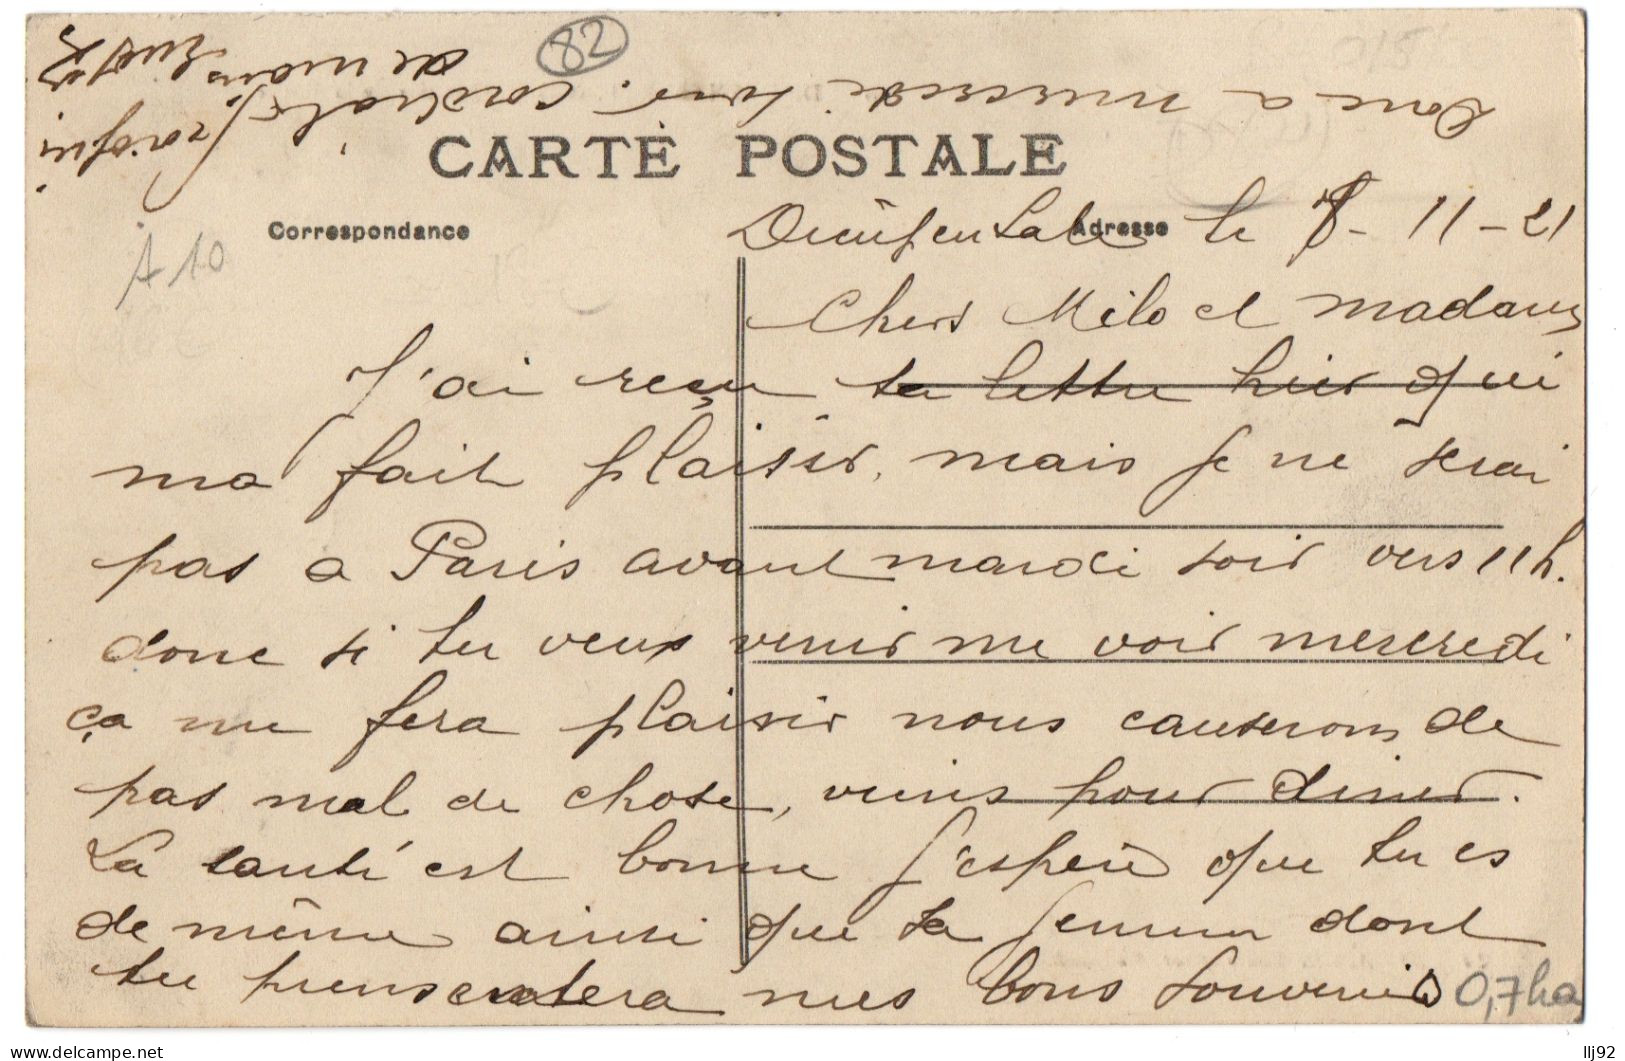 CARTE POSTALE
Correspondance
Adresse
82
A 10
le 8-11-21
Chers Milo et madame
J'ai reçu ta lettre hier qui
ma fait plaisir, mais je ne serai
pas a Paris avant mardi soir vers 11h.
donc si tu veux venir me voir mercredi
ça me fera plaisir nous causerons de
pas mal de chose, viens pour diner.
La santé est bonne j'espère que tu es
de même ainsi que ta femme dont
tu presentera mes bons souvenirs
Donc a mercredi soir. cordiale
de mains
0,7ha
llj92